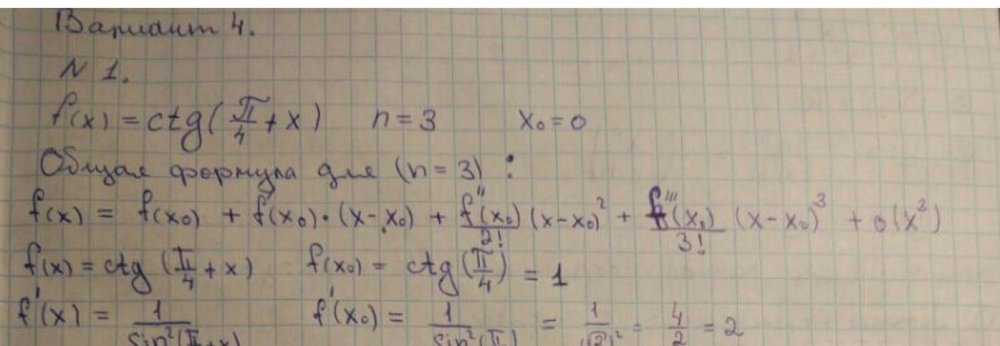 Вариант 4.
N 1.
f(x) = ctg(π/4 + x) n = 3 x₀ = 0
Общая формула для (n = 3) :
f(x) = f(x₀) + f'(x₀)·(x-x₀) + f''(x₀)/2! (x-x₀)² + f'''(x₀)/3! (x-x₀)³ + o(x³)
f(x) = ctg (π/4 + x) f(x₀) = ctg (π/4) = 1
f'(x) = 1/sin²(π/4+x) f'(x₀) = 1/sin²(π) = 1/(√2)² = 4/2 = 2